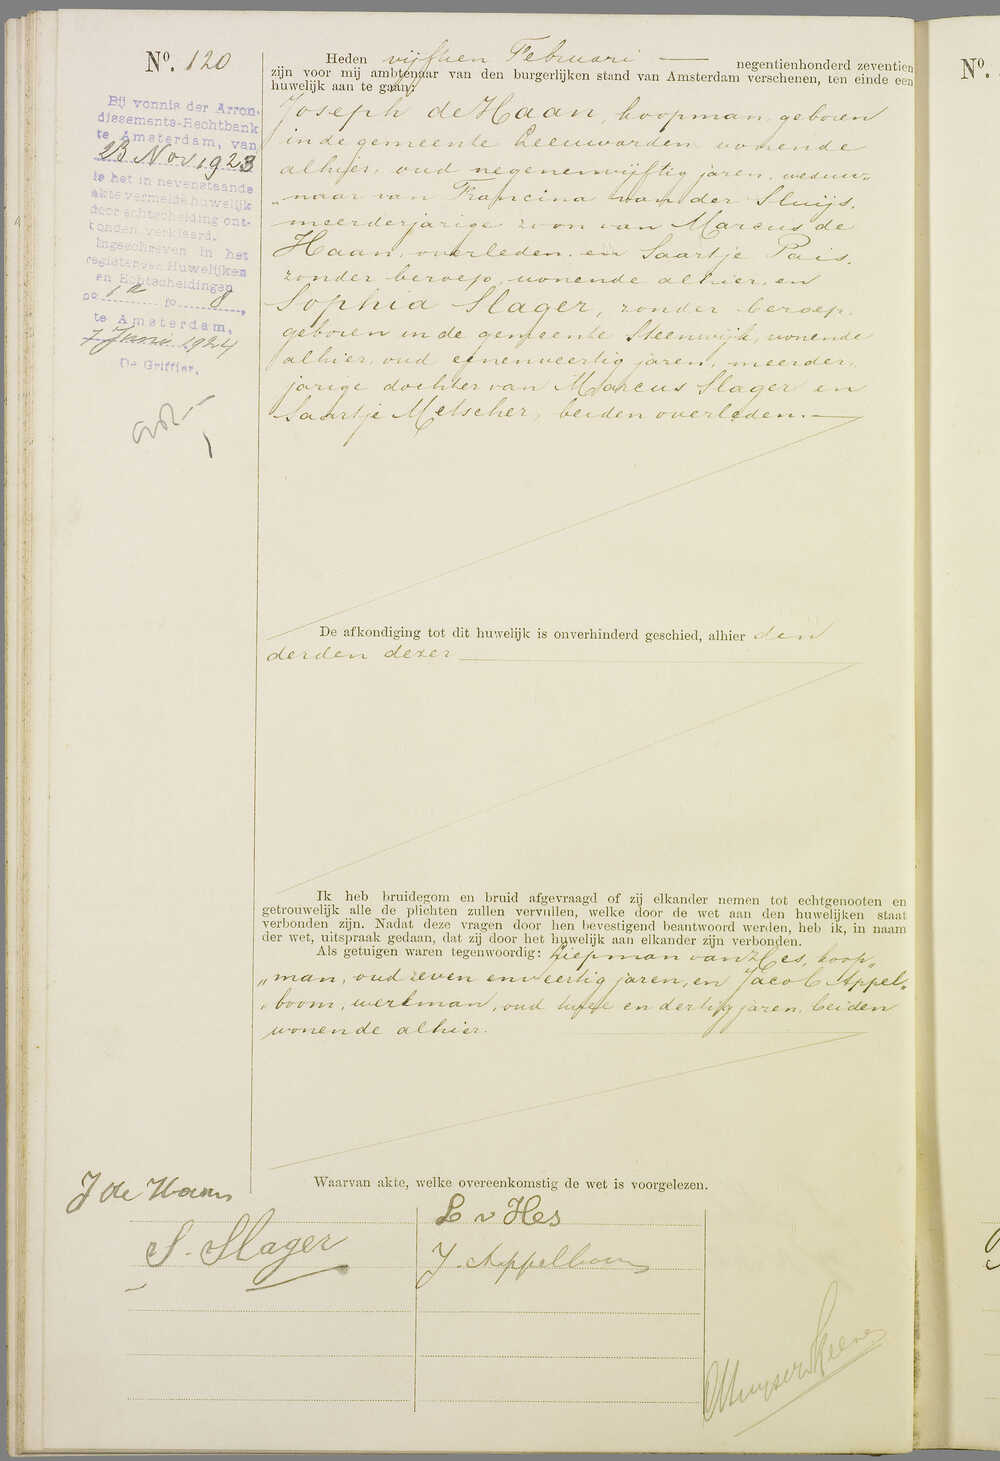 Nº. 120
Bij vonnis der Arron-
dissements-Rechtbank
te Amsterdam, van
23 Nov 1923
is het in nevenstaande
akte vermelde huwelijk
door echtscheiding ont-
bonden verklaard.
Ingeschreven in het
register van Huwelijken
en Echtscheidingen
no 1a fo 8,
te Amsterdam,
7 Juni 1924
De Griffier,
Heden vijftien Februari — negentienhonderd zeventien
zijn voor mij ambtenaar van den burgerlijken stand van Amsterdam verschenen, ten einde een
huwelijk aan te gaan:
Joseph de Haan, koopman, geboren
in de gemeente Leeuwarden, wonende
alhier, oud negenenvijftig jaren, weduw-
"naar van Francina van der Sluijs,
meerderjarige zoon van Marcus de
Haan, overleden, en Saartje Pais,
zonder beroep, wonende alhier, en
Sophia Slager, zonder beroep,
geboren in de gemeente Steenwijk, wonende
alhier, oud eenenveertig jaren, meerder-
jarige dochter van Marcus Slager en
Saartje Metscher, beiden overleden.—
De afkondiging tot dit huwelijk is onverhinderd geschied, alhier den
derden dezer
Ik heb bruidegom en bruid afgevraagd of zij elkander nemen tot echtgenooten en
getrouwelijk alle de plichten zullen vervullen, welke door de wet aan den huwelijken staat
verbonden zijn. Nadat deze vragen door hen bevestigend beantwoord werden, heb ik, in naam
der wet, uitspraak gedaan, dat zij door het huwelijk aan elkander zijn verbonden.
Als getuigen waren tegenwoordig: Liepman van Hes, koop-
"man, oud zeven en veertig jaren, en Jacob Appel-
"boom, werkman, oud twee en dertig jaren, beiden
wonende alhier.
Waarvan akte, welke overeenkomstig de wet is voorgelezen.
J de Haan
L v Hes
S. Slager
J. Appelboom
Nº.